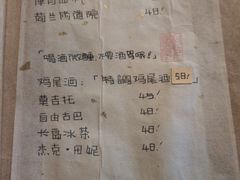 荷兰修道院 48!
「喝酒微醺,不要酒驾哦!」
鸡尾酒:「特調鸡尾酒」 58!
莫吉托 45!
自由古巴 48!
长岛冰茶 48!
杰克·丹妮 48!